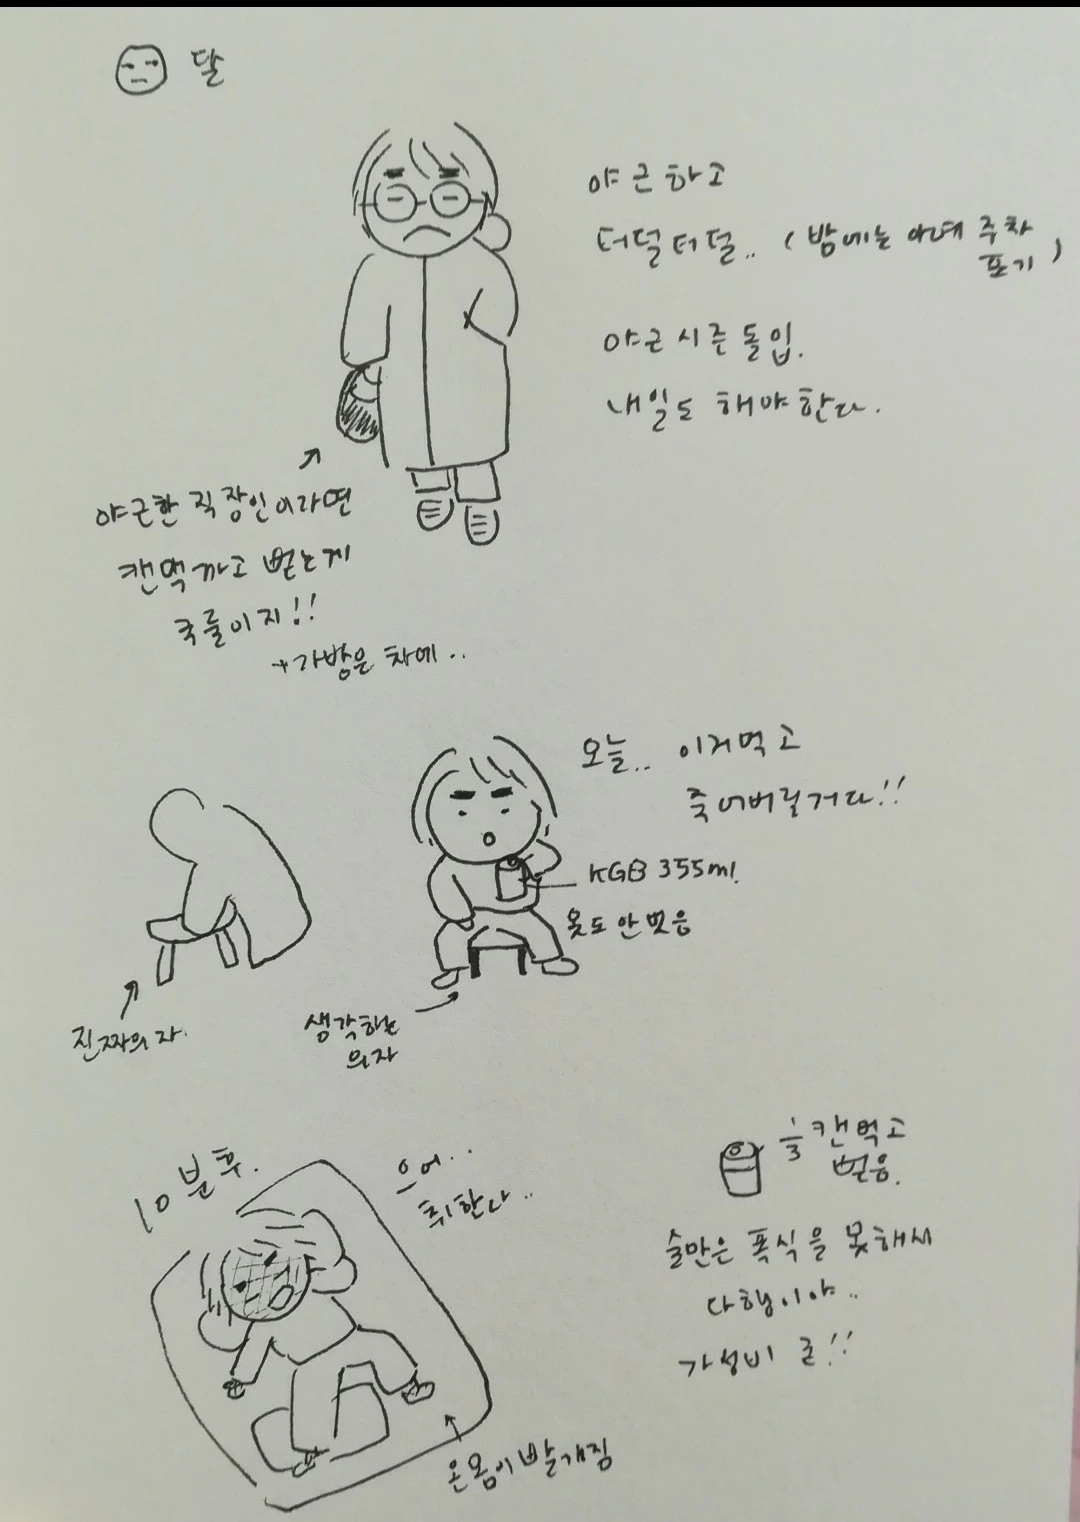 달
야근하고
터덜터덜.. (밤에는 아예 주차
포기)
야근시즌 돌입.
내일도 해야한다.
야근한 직장인이라면
캔맥까고 뻗는게
국룰이지!!
+가방은 차에..
오늘.. 이거먹고
죽어버릴거다!!
KGB 355ml.
옷도 안벗음
진짜의자.
생각하는
의자
10분후.
으어..
취한다..
1/3캔먹고
뻗음.
술만은 폭식을 못해서
다행이야..
가성비 굳!!
온몸이 빨개짐